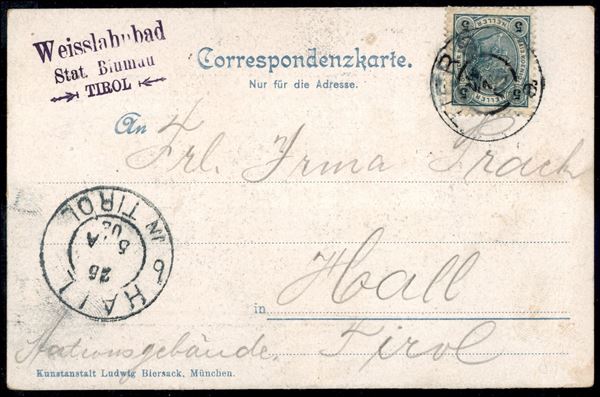 Weisslahnbad
Stat. Blumau
TIROL
Correspondenzkarte.
Nur für die Adresse.
5 HELLER 5
An Frl. Irma Prach
HALL IN TIROL
26 5 02 A
in Hall
Stationsgebäude, Tirol
Kunstanstalt Ludwig Biersack, München.